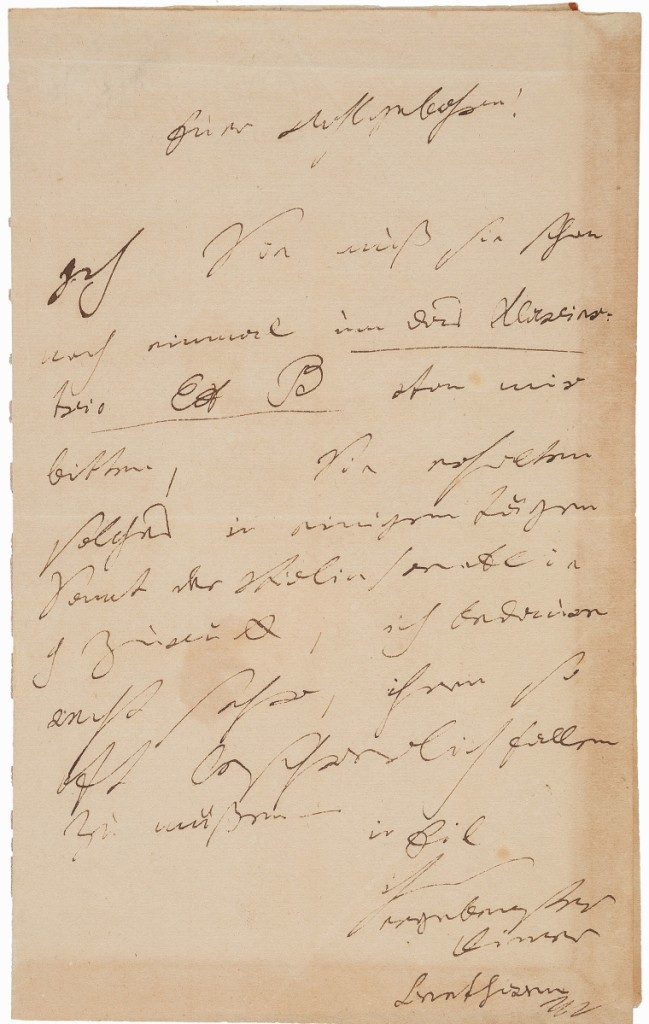 Euer Wohlgebohren!
Ich Sie muß sie schon
noch einmal um das Klavier-
trio Ex B von mir
bitten, Sie erhalten
solches in einigen Tägen
Sammt der Violin sonate in
G zurück, ich bedaure
recht sehr, ihnen so
oft beschwerlich fallen
zu müßen — in Eil
ihr
ergebenster
Diener
Beethoven